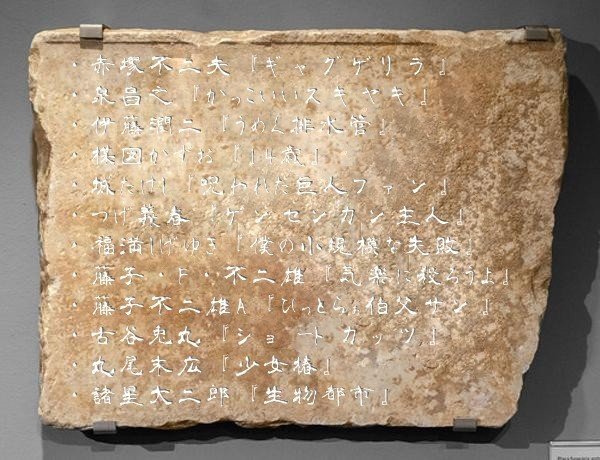 ・赤塚不二夫『ギャグゲリラ』
・泉昌之『かっこいいスキヤキ』
・伊藤潤二『うめく排水管』
・楳図かずお『14歳』
・城たけし『呪われた巨人ファン』
・つげ義春『ゲンセンカン主人』
・福満しげゆき『僕の小規模な失敗』
・藤子・F・不二雄『気楽に殺ろうよ』
・藤子不二雄A『ひっとらぁ伯父サン』
・古谷兎丸『ショートカッツ』
・丸尾末広『少女椿』
・諸星大二郎『生物都市』